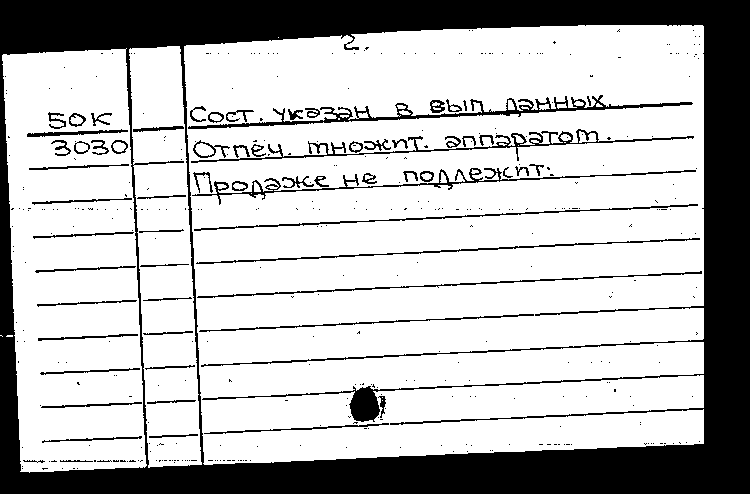 2.
БОК Сост. указан в вып. данных.
3030 Отпеч. множит. аппаратом.
Продаже не подлежит.